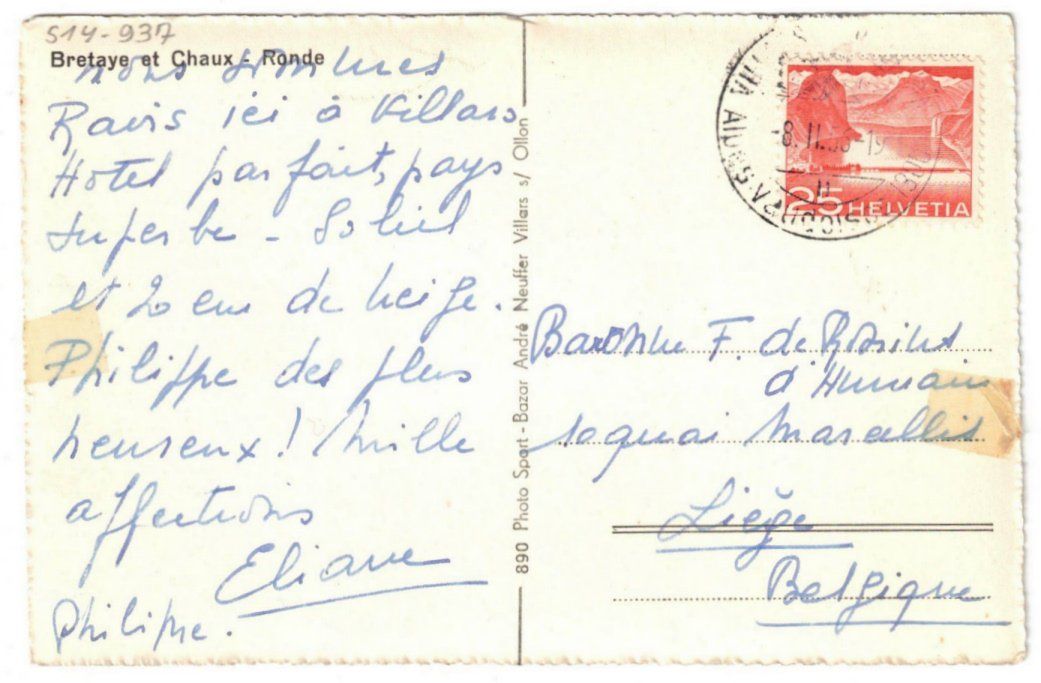 S14-937
Bretaye et Chaux - Ronde
nous sommes
Ravis ici à Villars
Hotel parfait, pays
superbe - Soleil
et 20 cm de neige.
Philippe des plus
heureux! Mille
affections
Eliane
Philippe.
890 Photo Sport - Bazar André Neuffer Villars s/ Ollon
25 HELVETIA
-8. II. 56-19
Baronne F. de Rosius
d'Humain
10 quai Marcellis
Liège
Belgique